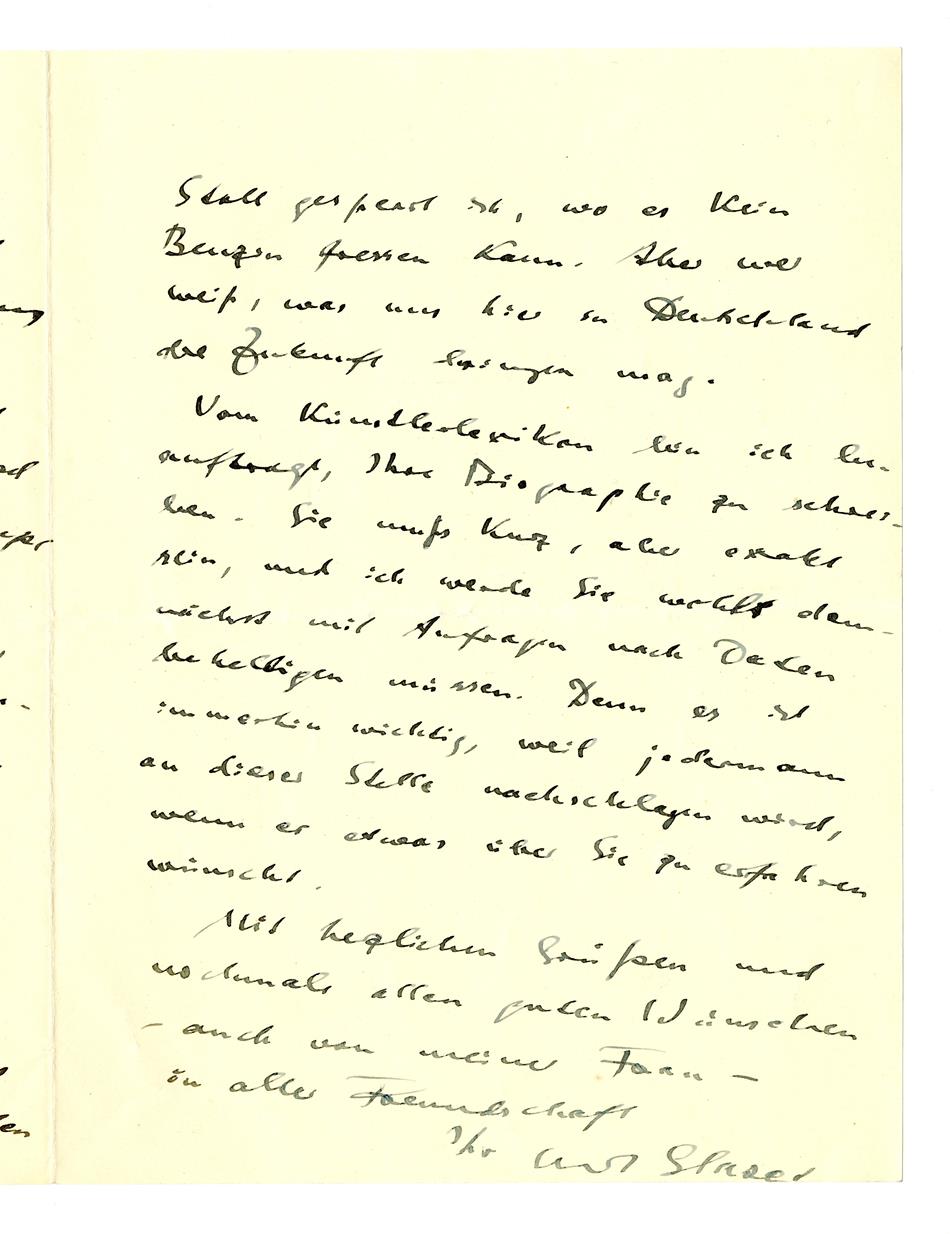 Stall gesperrt ist, wo es kein
Benzin fressen kann. Aber wer
weiß, was uns hier in Deutschland
die Zukunft bringen mag.
Vom Künstlerlexikon bin ich be-
auftragt, Ihre Biographie zu schrei-
ben. Sie muß kurz, aber exakt
sein, und ich werde Sie wohl dem-
nächst mit Anfragen nach Daten
behelligen müssen. Denn es ist
immerhin wichtig, weil jedermann
an dieser Stelle nachschlagen wird,
wenn er etwas über Sie zu erfahren
wünscht.
Mit herzlichen Grüßen und
nochmals allen guten Wünschen
– auch von meiner Frau –
in aller Freundschaft
Ihr Curt Glaser